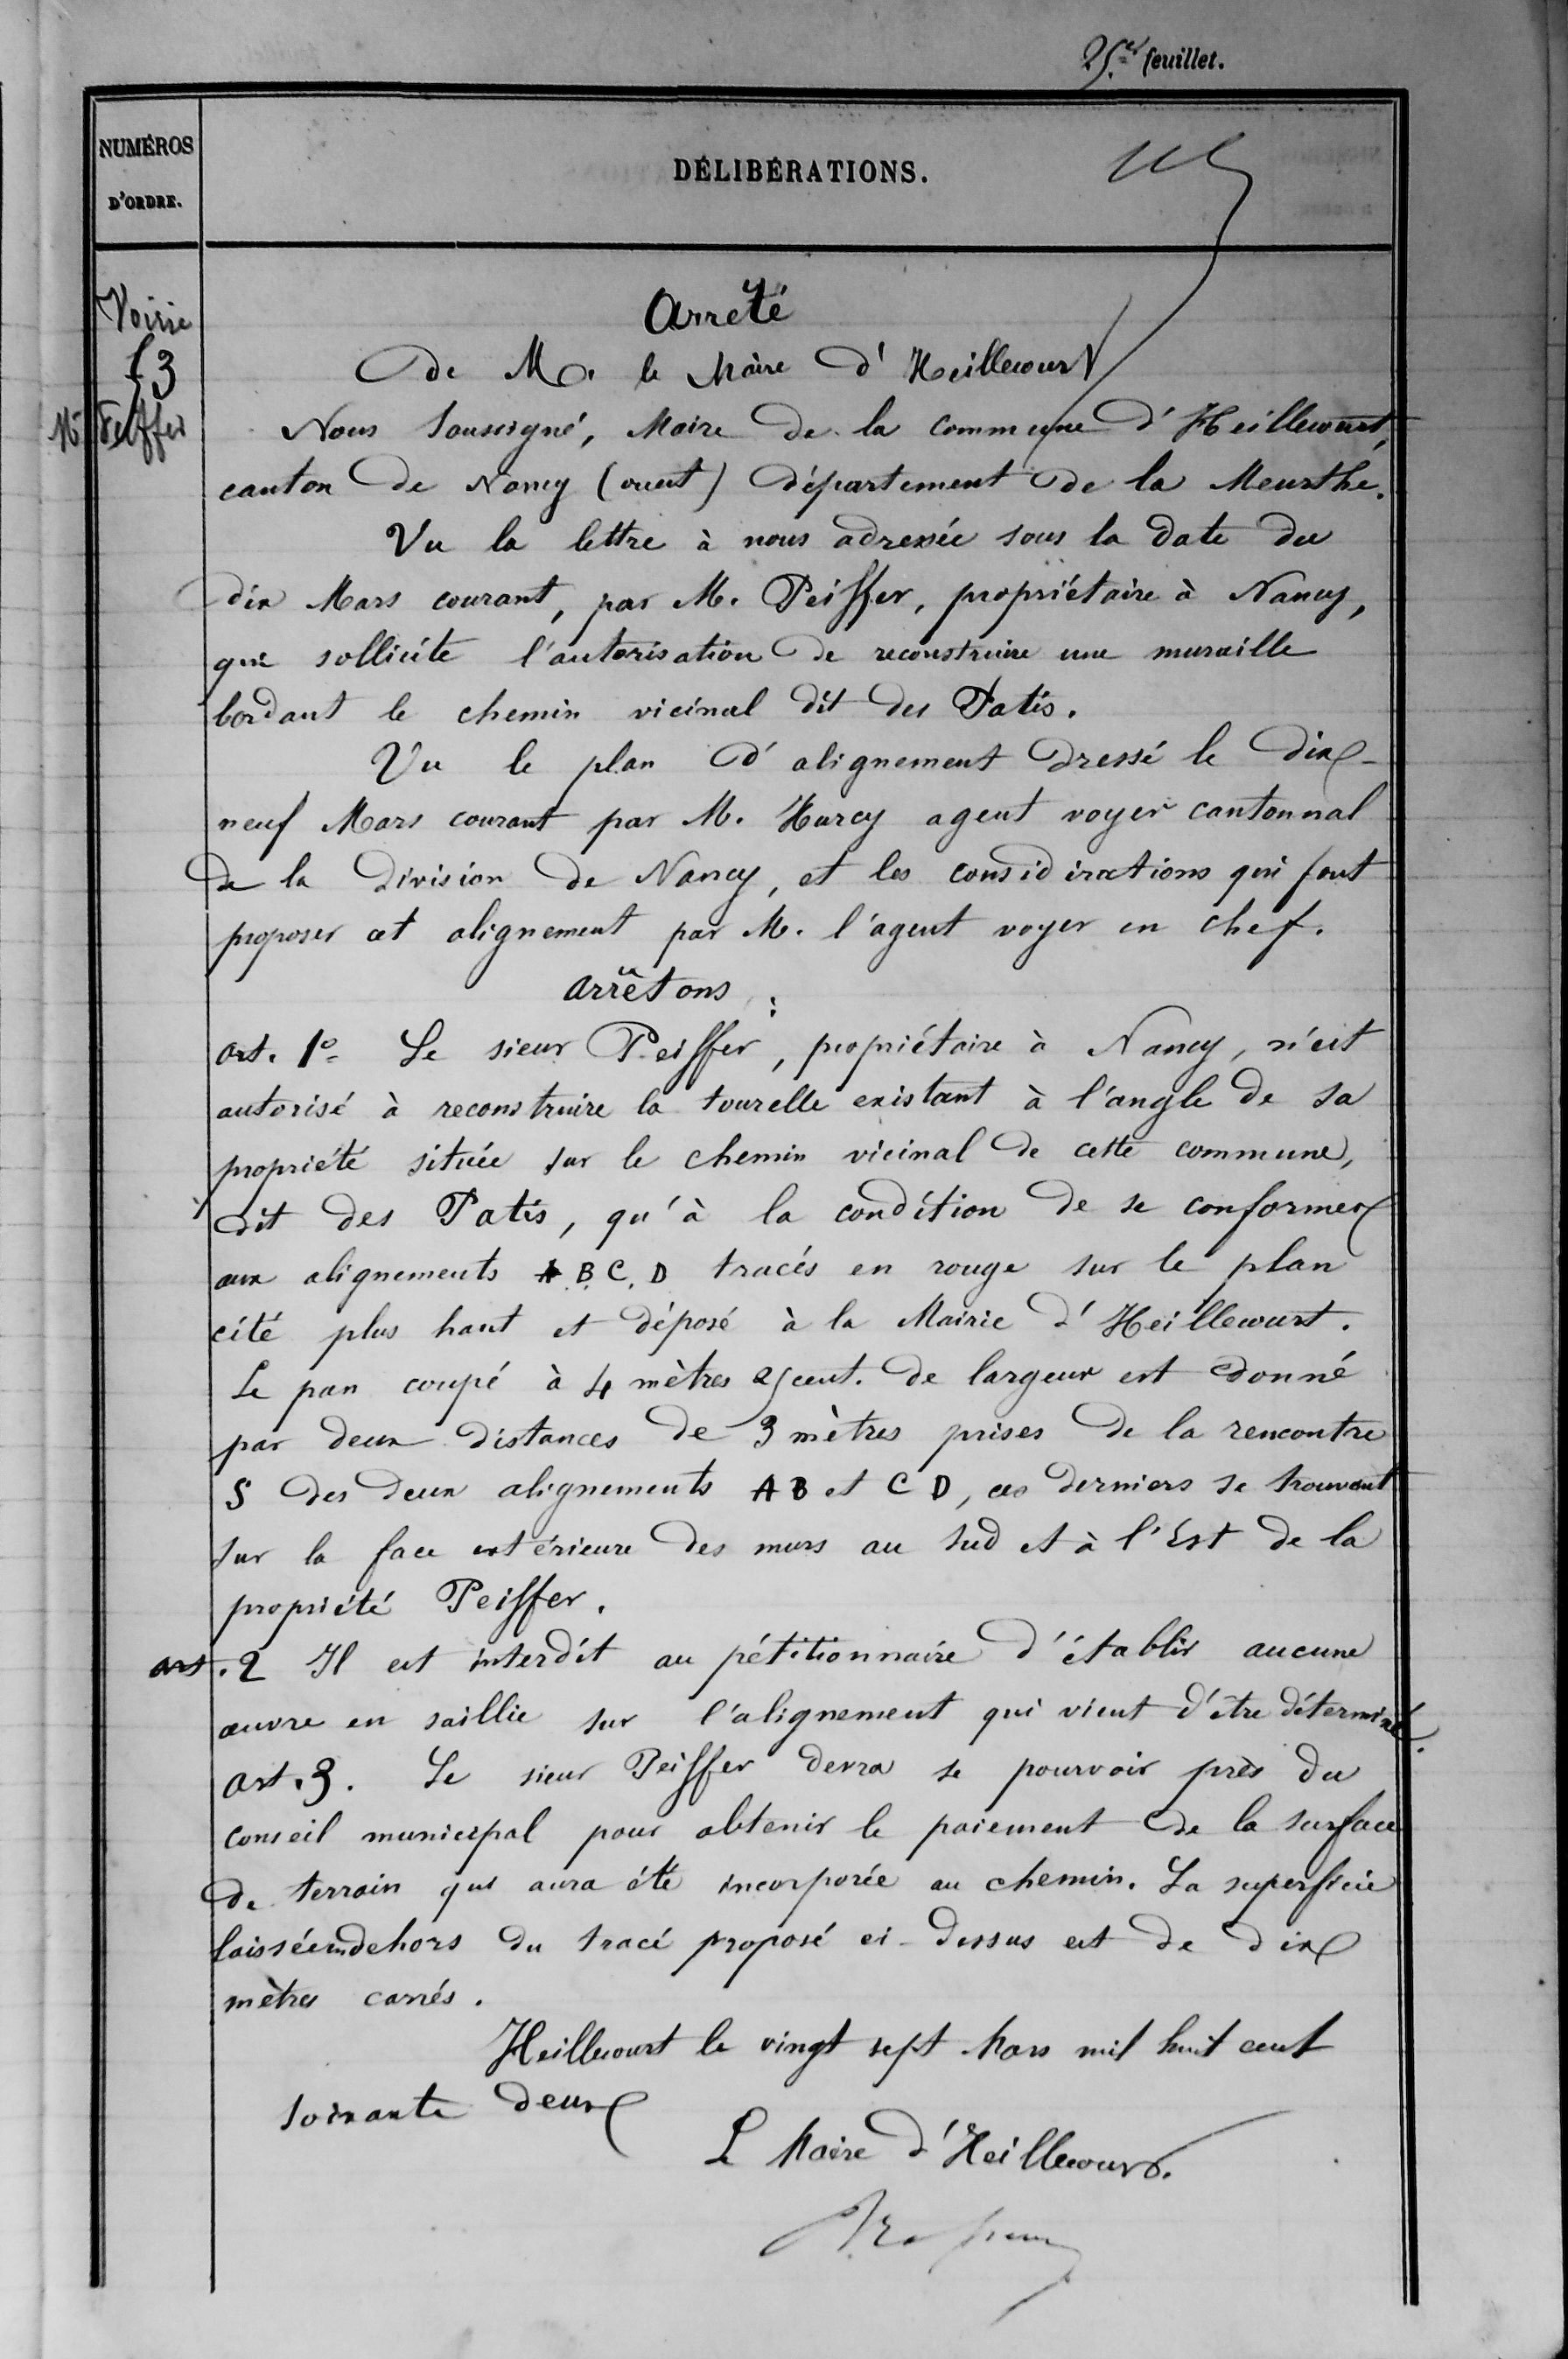 25.e feuillet.
NUMÉROS
D'ORDRE.
DÉLIBÉRATIONS.
Voirie
f3
Mr Peiffer
Arrêté
De M. le Maire d'Heillecourt
Nous soussigné, Maire de la commune d'Heillecourt,
canton de Nancy (ouest) département de la Meurthe.
Vu la lettre à nous adressée sous la date du
dix Mars courant, par M. Peiffer, propriétaire à Nancy,
qui sollicite l'autorisation de reconstruire une muraille
bordant le chemin vicinal dit des Patis.
Vu le plan d'alignement dressé le dix-
neuf Mars courant par M. Harcy agent voyer cantonnal
de la division de Nancy, et les considérations qui font
proposer cet alignement par M. l'agent voyer en chef.
arrêtons :
art. 1o Le sieur Peiffer, propriétaire à Nancy, n'est
autorisé à reconstruire la tourelle existant à l'angle de sa
propriété située sur le chemin vicinal de cette commune,
dit des Patis, qu'à la condition de se conformer
aux alignements A B. C. D tracés en rouge sur le plan
cité plus haut et déposé à la Mairie d'Heillecourt.
Le pan coupé à 4 mètres 25 cent. de largeur est donné
par deux distances de 3 mètres prises de la rencontre
S des deux alignements AB et CD, ces derniers se trouvant
sur la face extérieure des murs au sud et à l'Est de la
propriété Peiffer.
art. 2 Il est interdit au pétitionnaire d'établir aucune
œuvre en saillie sur l'alignement qui vient d'être déterminé.
art. 3. Le sieur Peiffer devra se pourvoir près du
conseil municipal pour obtenir le paiement de la surface
de terrain qui aura été incorporée au chemin. La superficie
laissée en dehors du tracé proposé ci-dessus est de dix
mètres carrés.
Heillecourt le vingt sept Mars mil huit cent
soixante deux
L Maire d'Heillecourt.